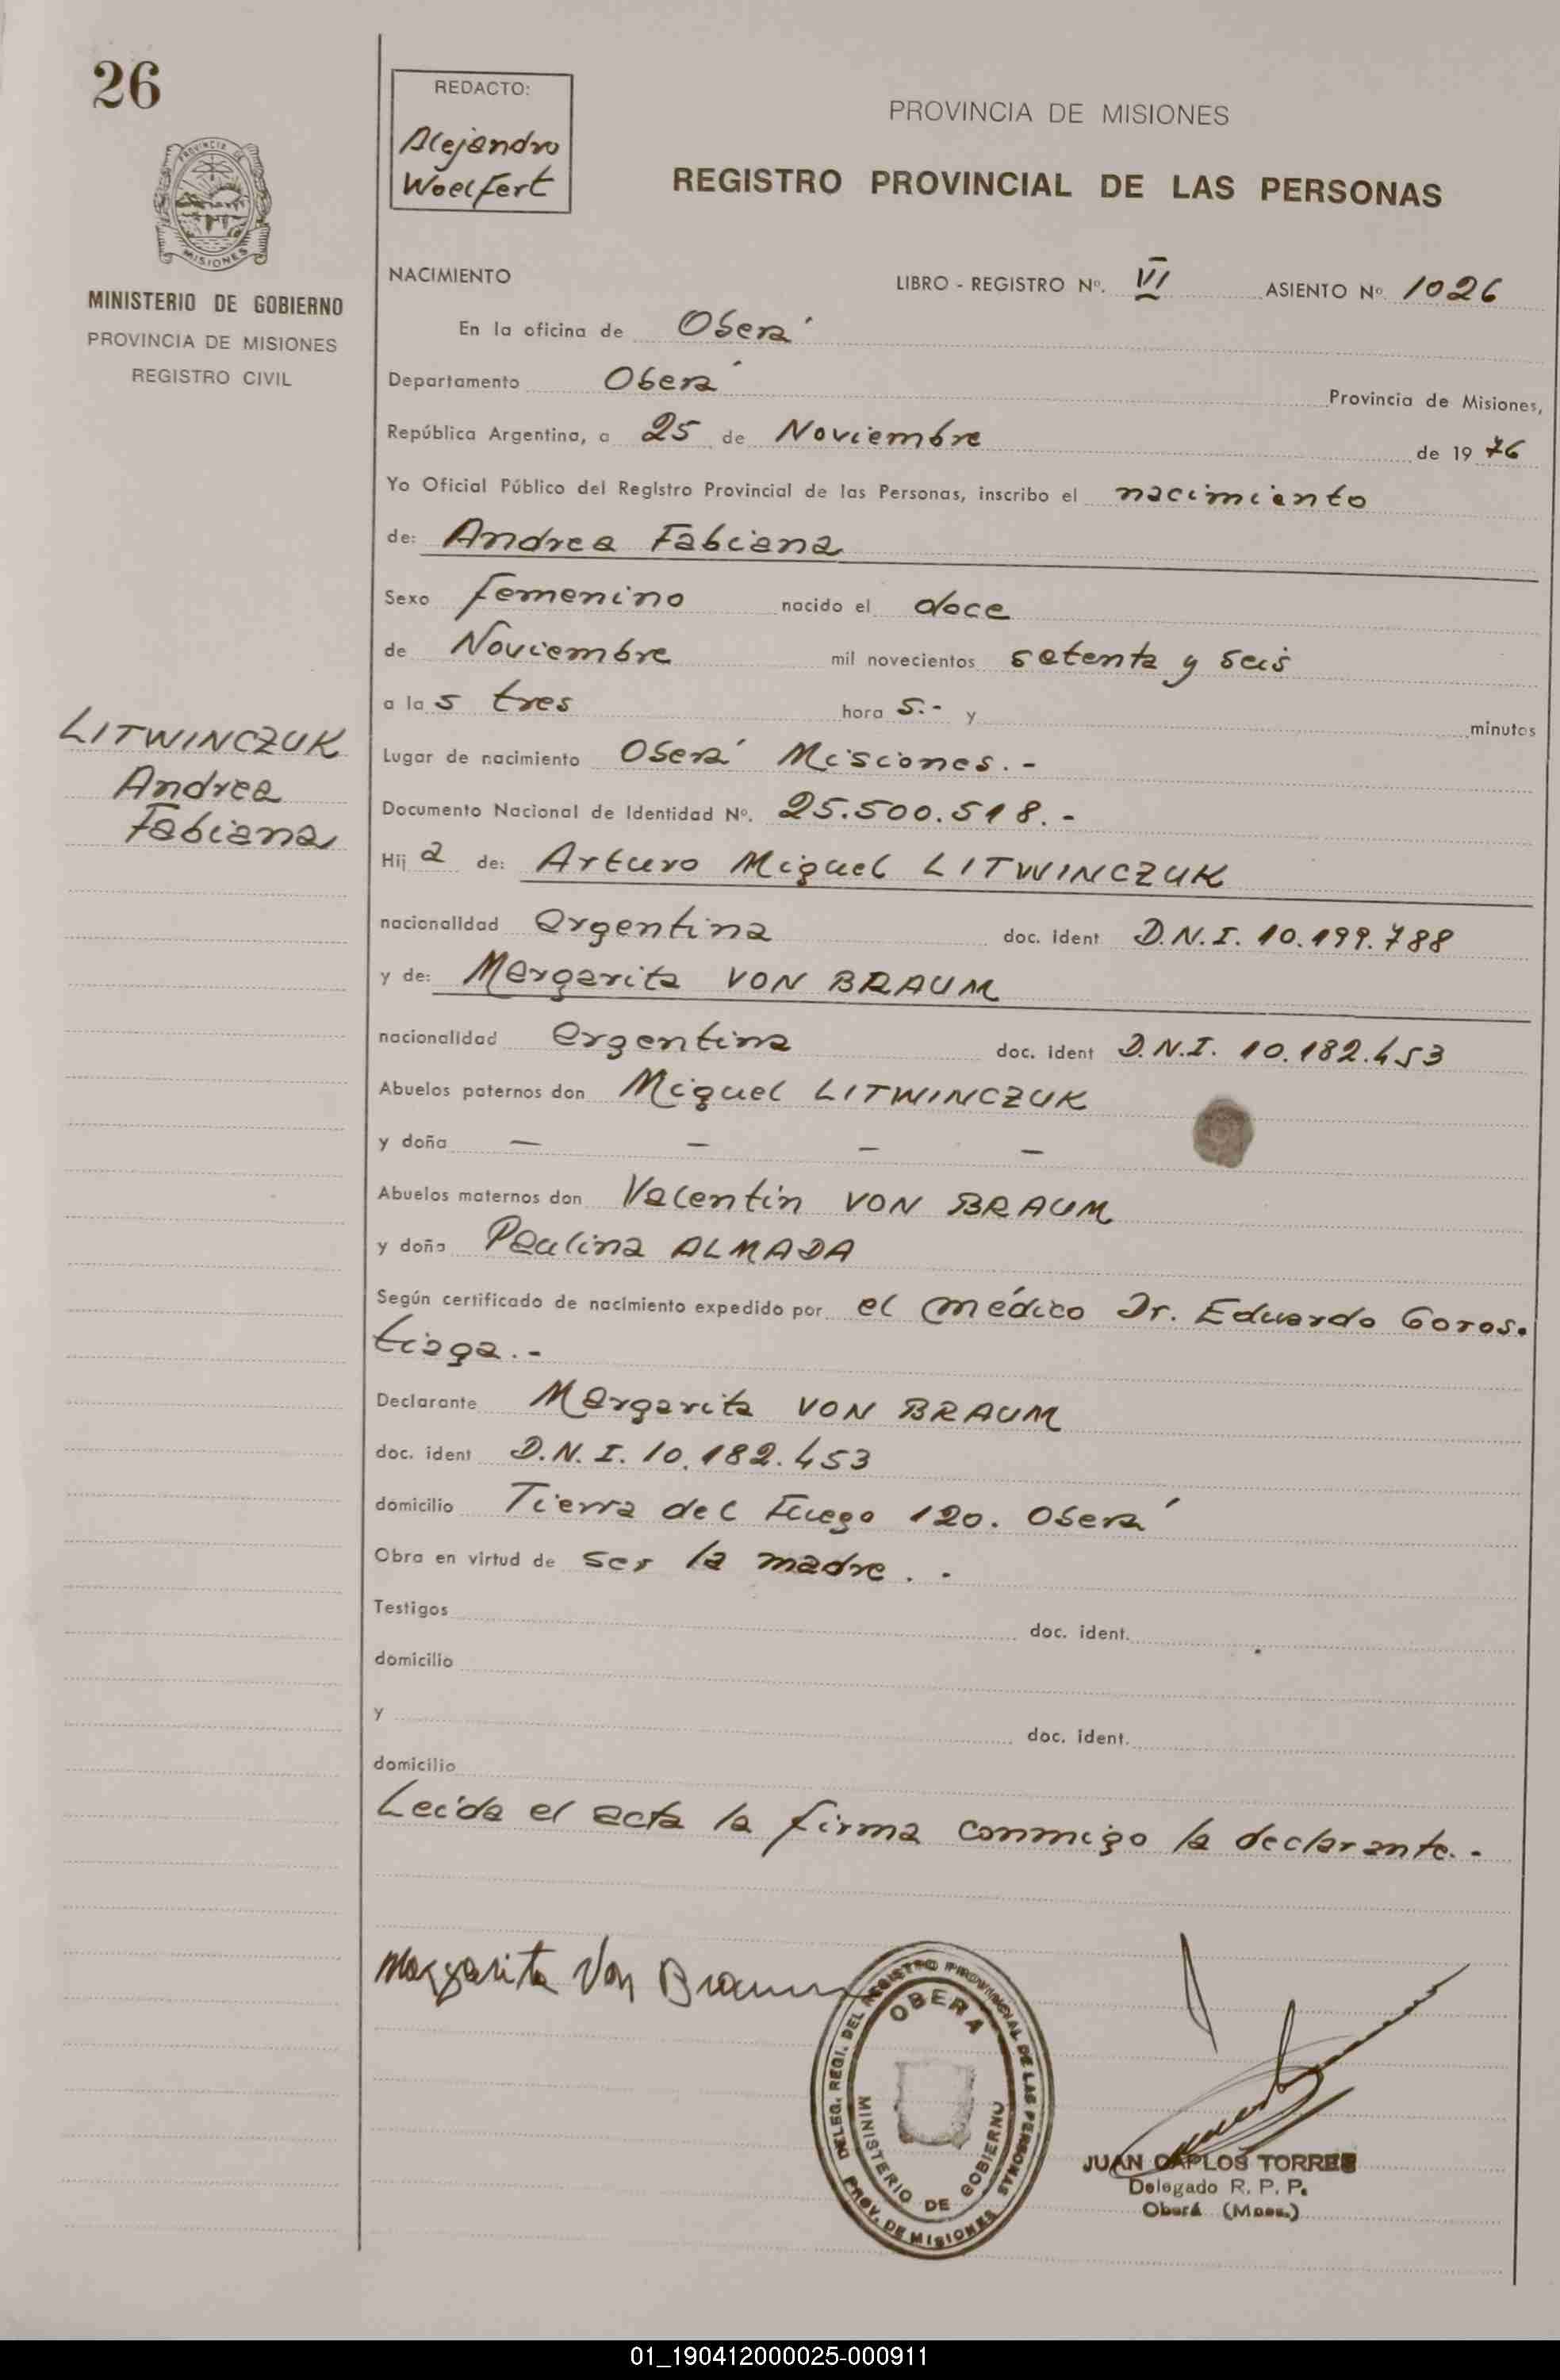 26
PROVINCIA DE
MISIONES
MINISTERIO DE GOBIERNO
PROVINCIA DE MISIONES
REGISTRO CIVIL
LITWINCZUK
Andrea
Fabiana
REDACTO:
Alejandro
Woelfert
PROVINCIA DE MISIONES
REGISTRO PROVINCIAL DE LAS PERSONAS
NACIMIENTO LIBRO - REGISTRO Nº. VI ASIENTO Nº. 1026
En la oficina de Oberá
Departamento Oberá Provincia de Misiones,
República Argentina, a 25 de Noviembre de 1976
Yo Oficial Público del Registro Provincial de las Personas, inscribo el nacimiento
de: Andrea Fabiana
Sexo femenino nacido el doce
de Noviembre mil novecientos setenta y seis
a las tres hora s.- y minutos
Lugar de nacimiento Oberá Misiones.-
Documento Nacional de Identidad Nº. 25.500.518.-
Hija de: Arturo Miguel LITWINCZUK
nacionalidad argentina doc. ident D.N.I. 10.199.788
y de: Margarita VON BRAUM
nacionalidad argentina doc. ident D.N.I. 10.182.453
Abuelos paternos don Miguel LITWINCZUK
y doña — — — —
Abuelos maternos don Valentin VON BRAUM
y doña Paulina ALMADA
Según certificado de nacimiento expedido por el médico Dr. Eduardo Goros.
tiaga.-
Declarante Margarita VON BRAUM
doc. ident D.N.I. 10.182.453
domicilio Tierra del Fuego 120. Oberá
Obra en virtud de ser la madre . -
Testigos doc. ident.
domicilio
y doc. ident.
domicilio
Leida el acta la firma conmigo la declarante.-
Margarita Von Braum
DELEG. REGI. DEL REGISTRO PROVINCIAL DE LAS PERSONAS
OBERA
MINISTERIO DE GOBIERNO
PROV. DE MISIONES
JUAN CARLOS TORRES
Delegado R. P. P.
Oberá (Mnes.)
01_190412000025-000911